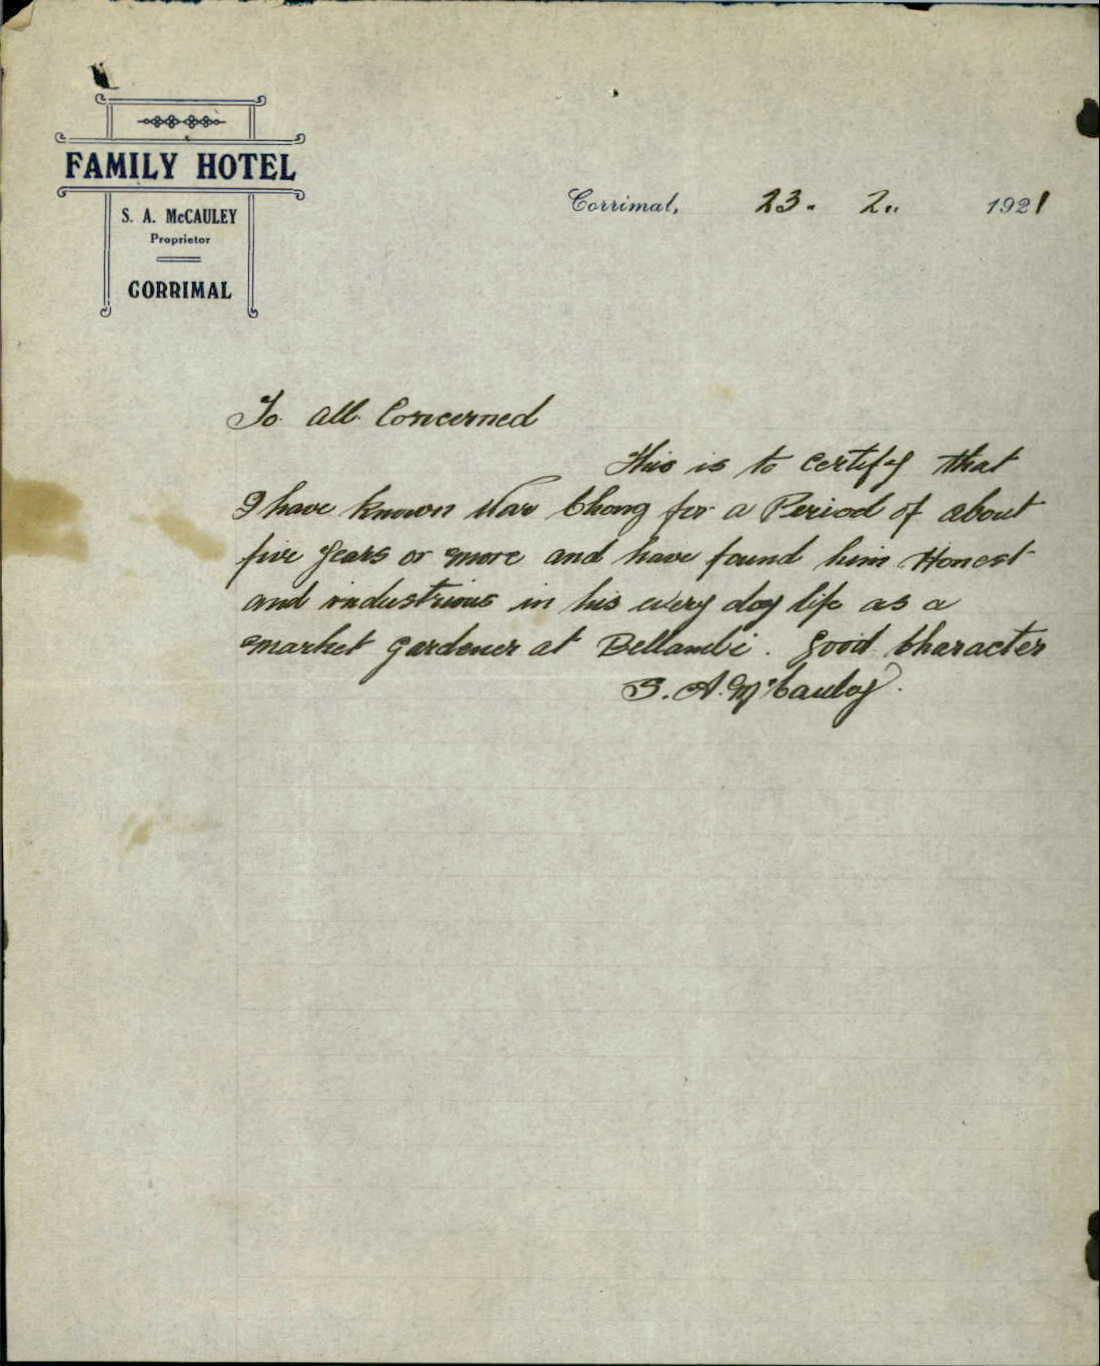 FAMILY HOTEL
S. A. McCAULEY
Proprietor
CORRIMAL
Corrimal, 23. 2.. 1921
To all Concerned
This is to certify that
I have known War Chong for a Period of about
five years or more and have found him Honest
and industrious in his every day life as a
market gardener at Bellambi. good Character
S. A. McCauley.